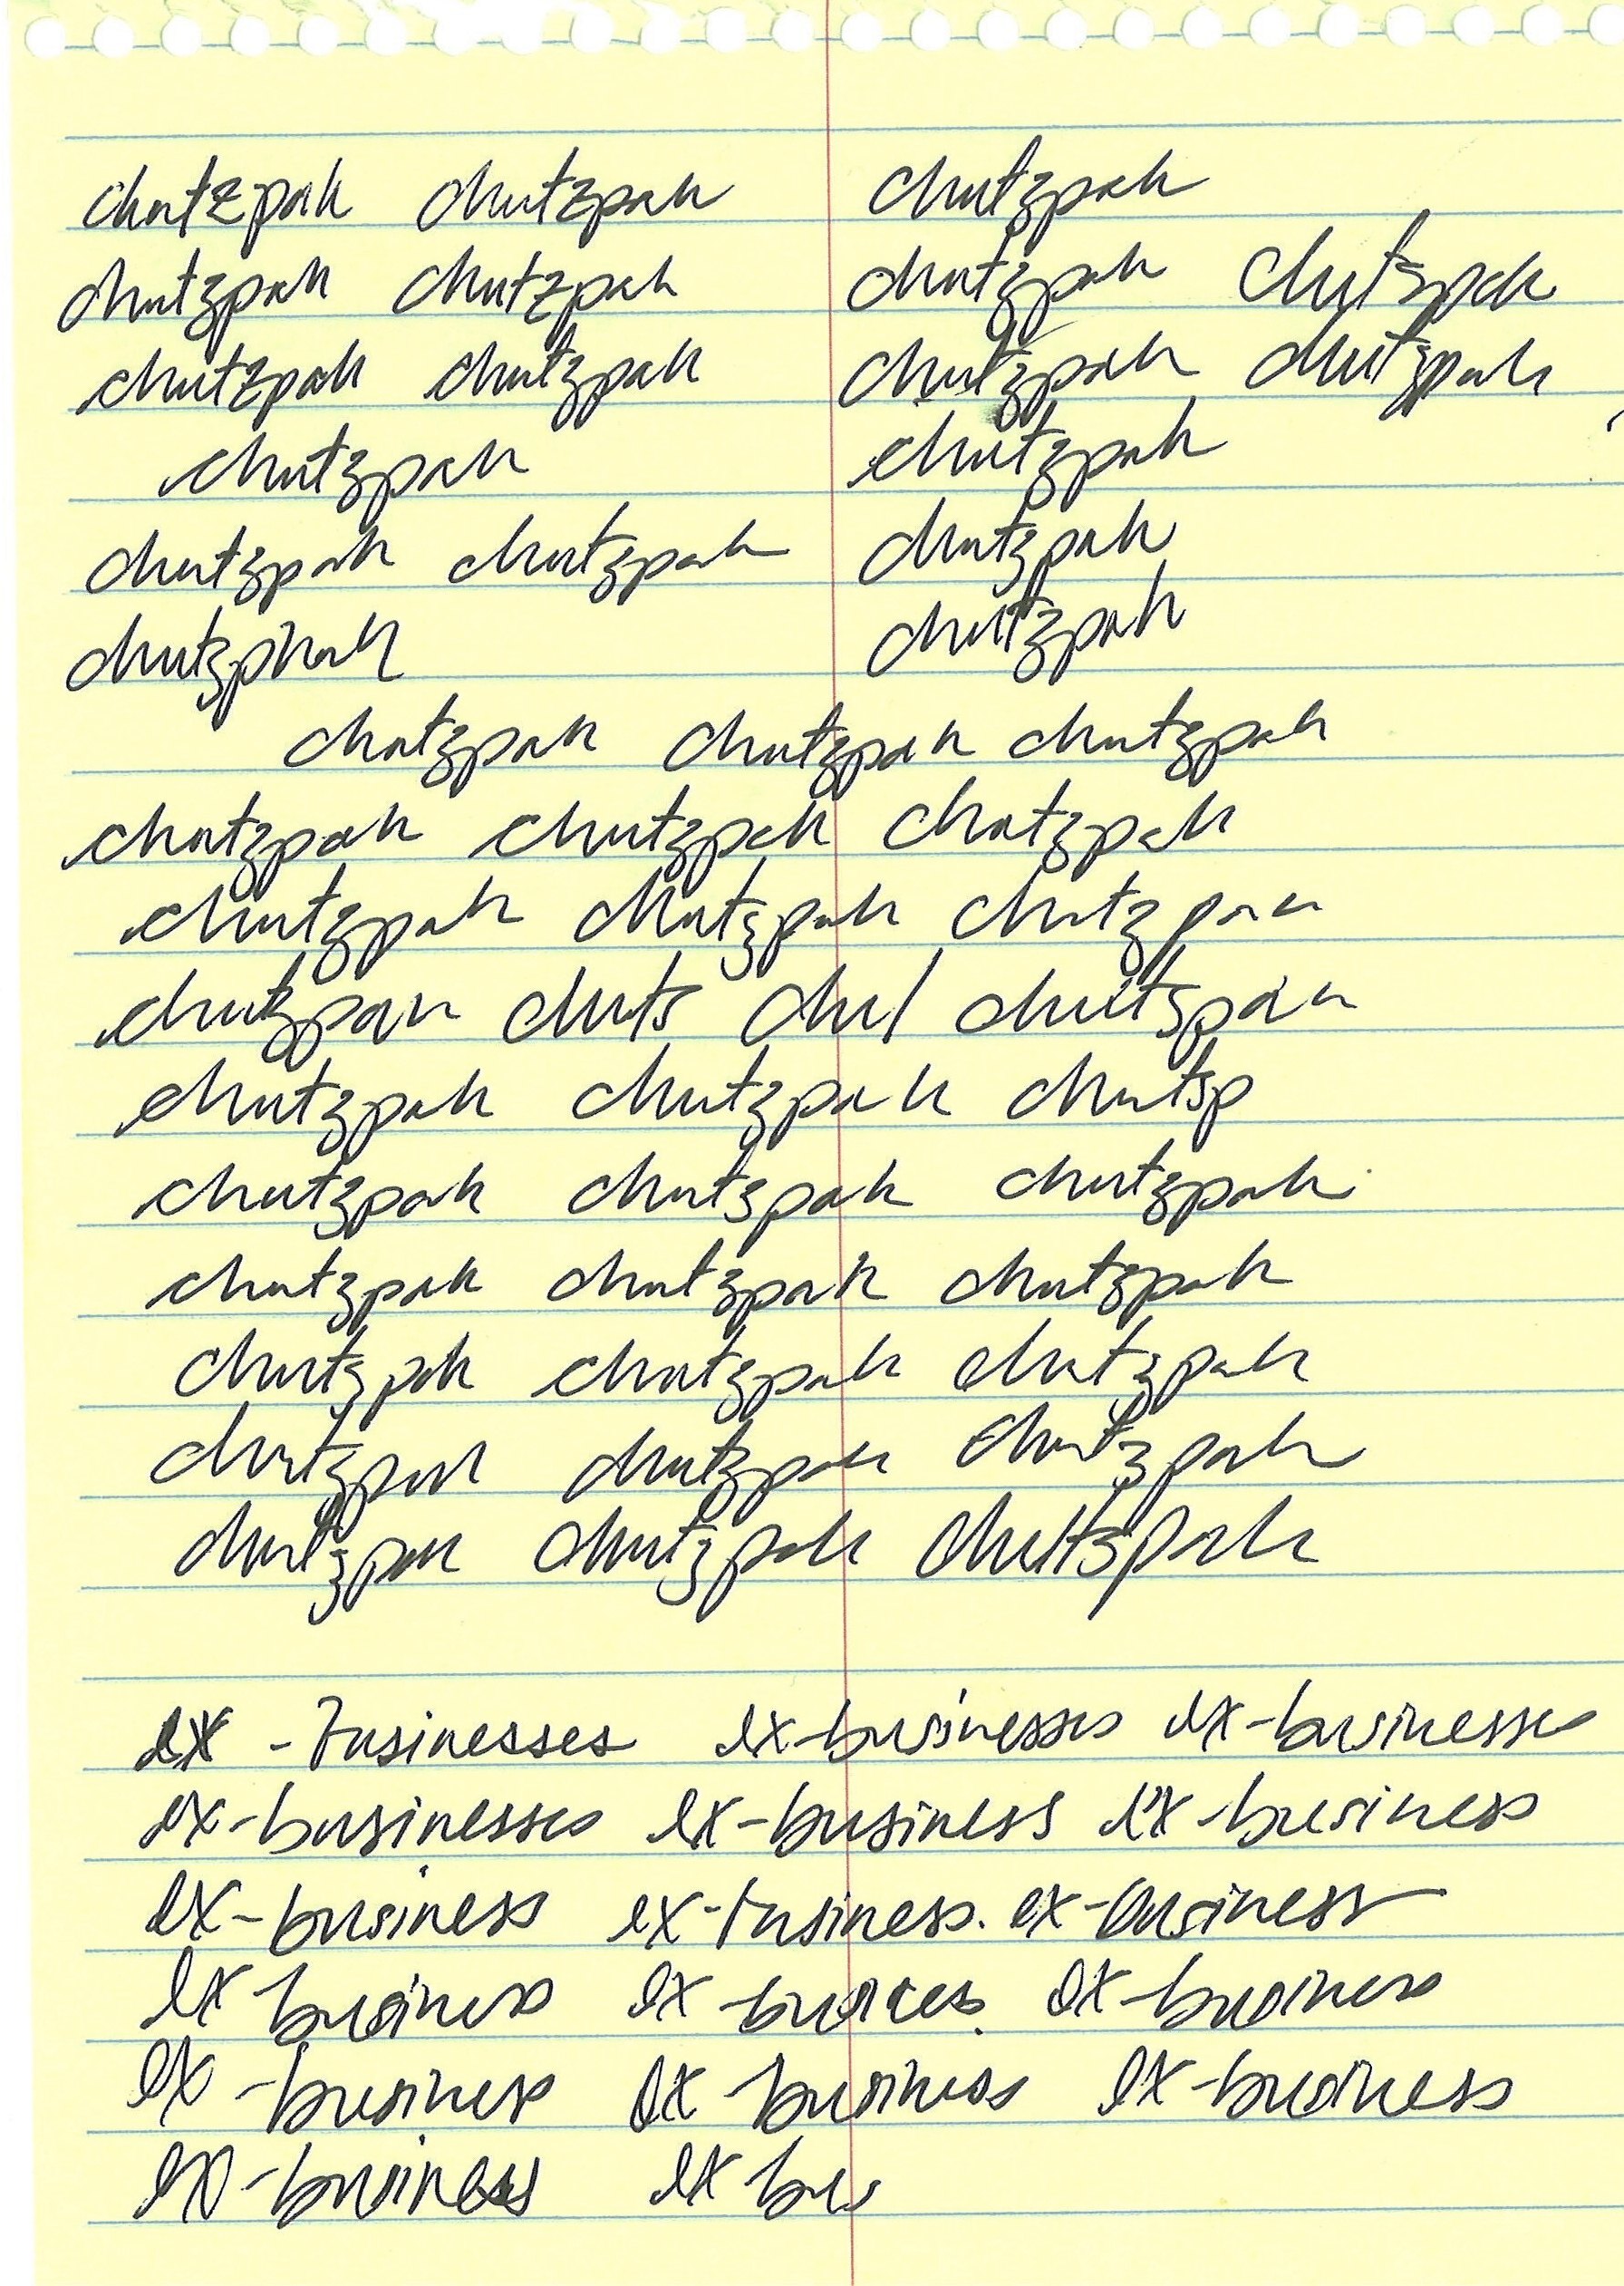 chutzpah chutzpah chutzpah
chutzpah chutzpah chutzpah chutzpah
chutzpah chutzpah chutzpah chutzpah
chutzpah chutzpah
chutzpah chutzpah chutzpah
chutzphah chutzpah
chutzpah chutzpah chutzpah
chutzpah chutzpah chutzpah
chutzpah chutzpah chutzpah
chutzpah chuts chut chutspah
chutzpah chutzpah chutsp
chutzpah chutspah chutzpah
chutzpah chutzpah chutzpah
chutzpah chutzpah chutzpah
chutzpah chutzpah chutzpah
chutzpah chutzpah chuttspah
ex - businesses ex-businesses ex-businesses
ex-businesses ex-business ex-business
ex-business ex-business. ex-business
ex-business ex-business
ex-business ex-business ex-business
ex-business ex-bus